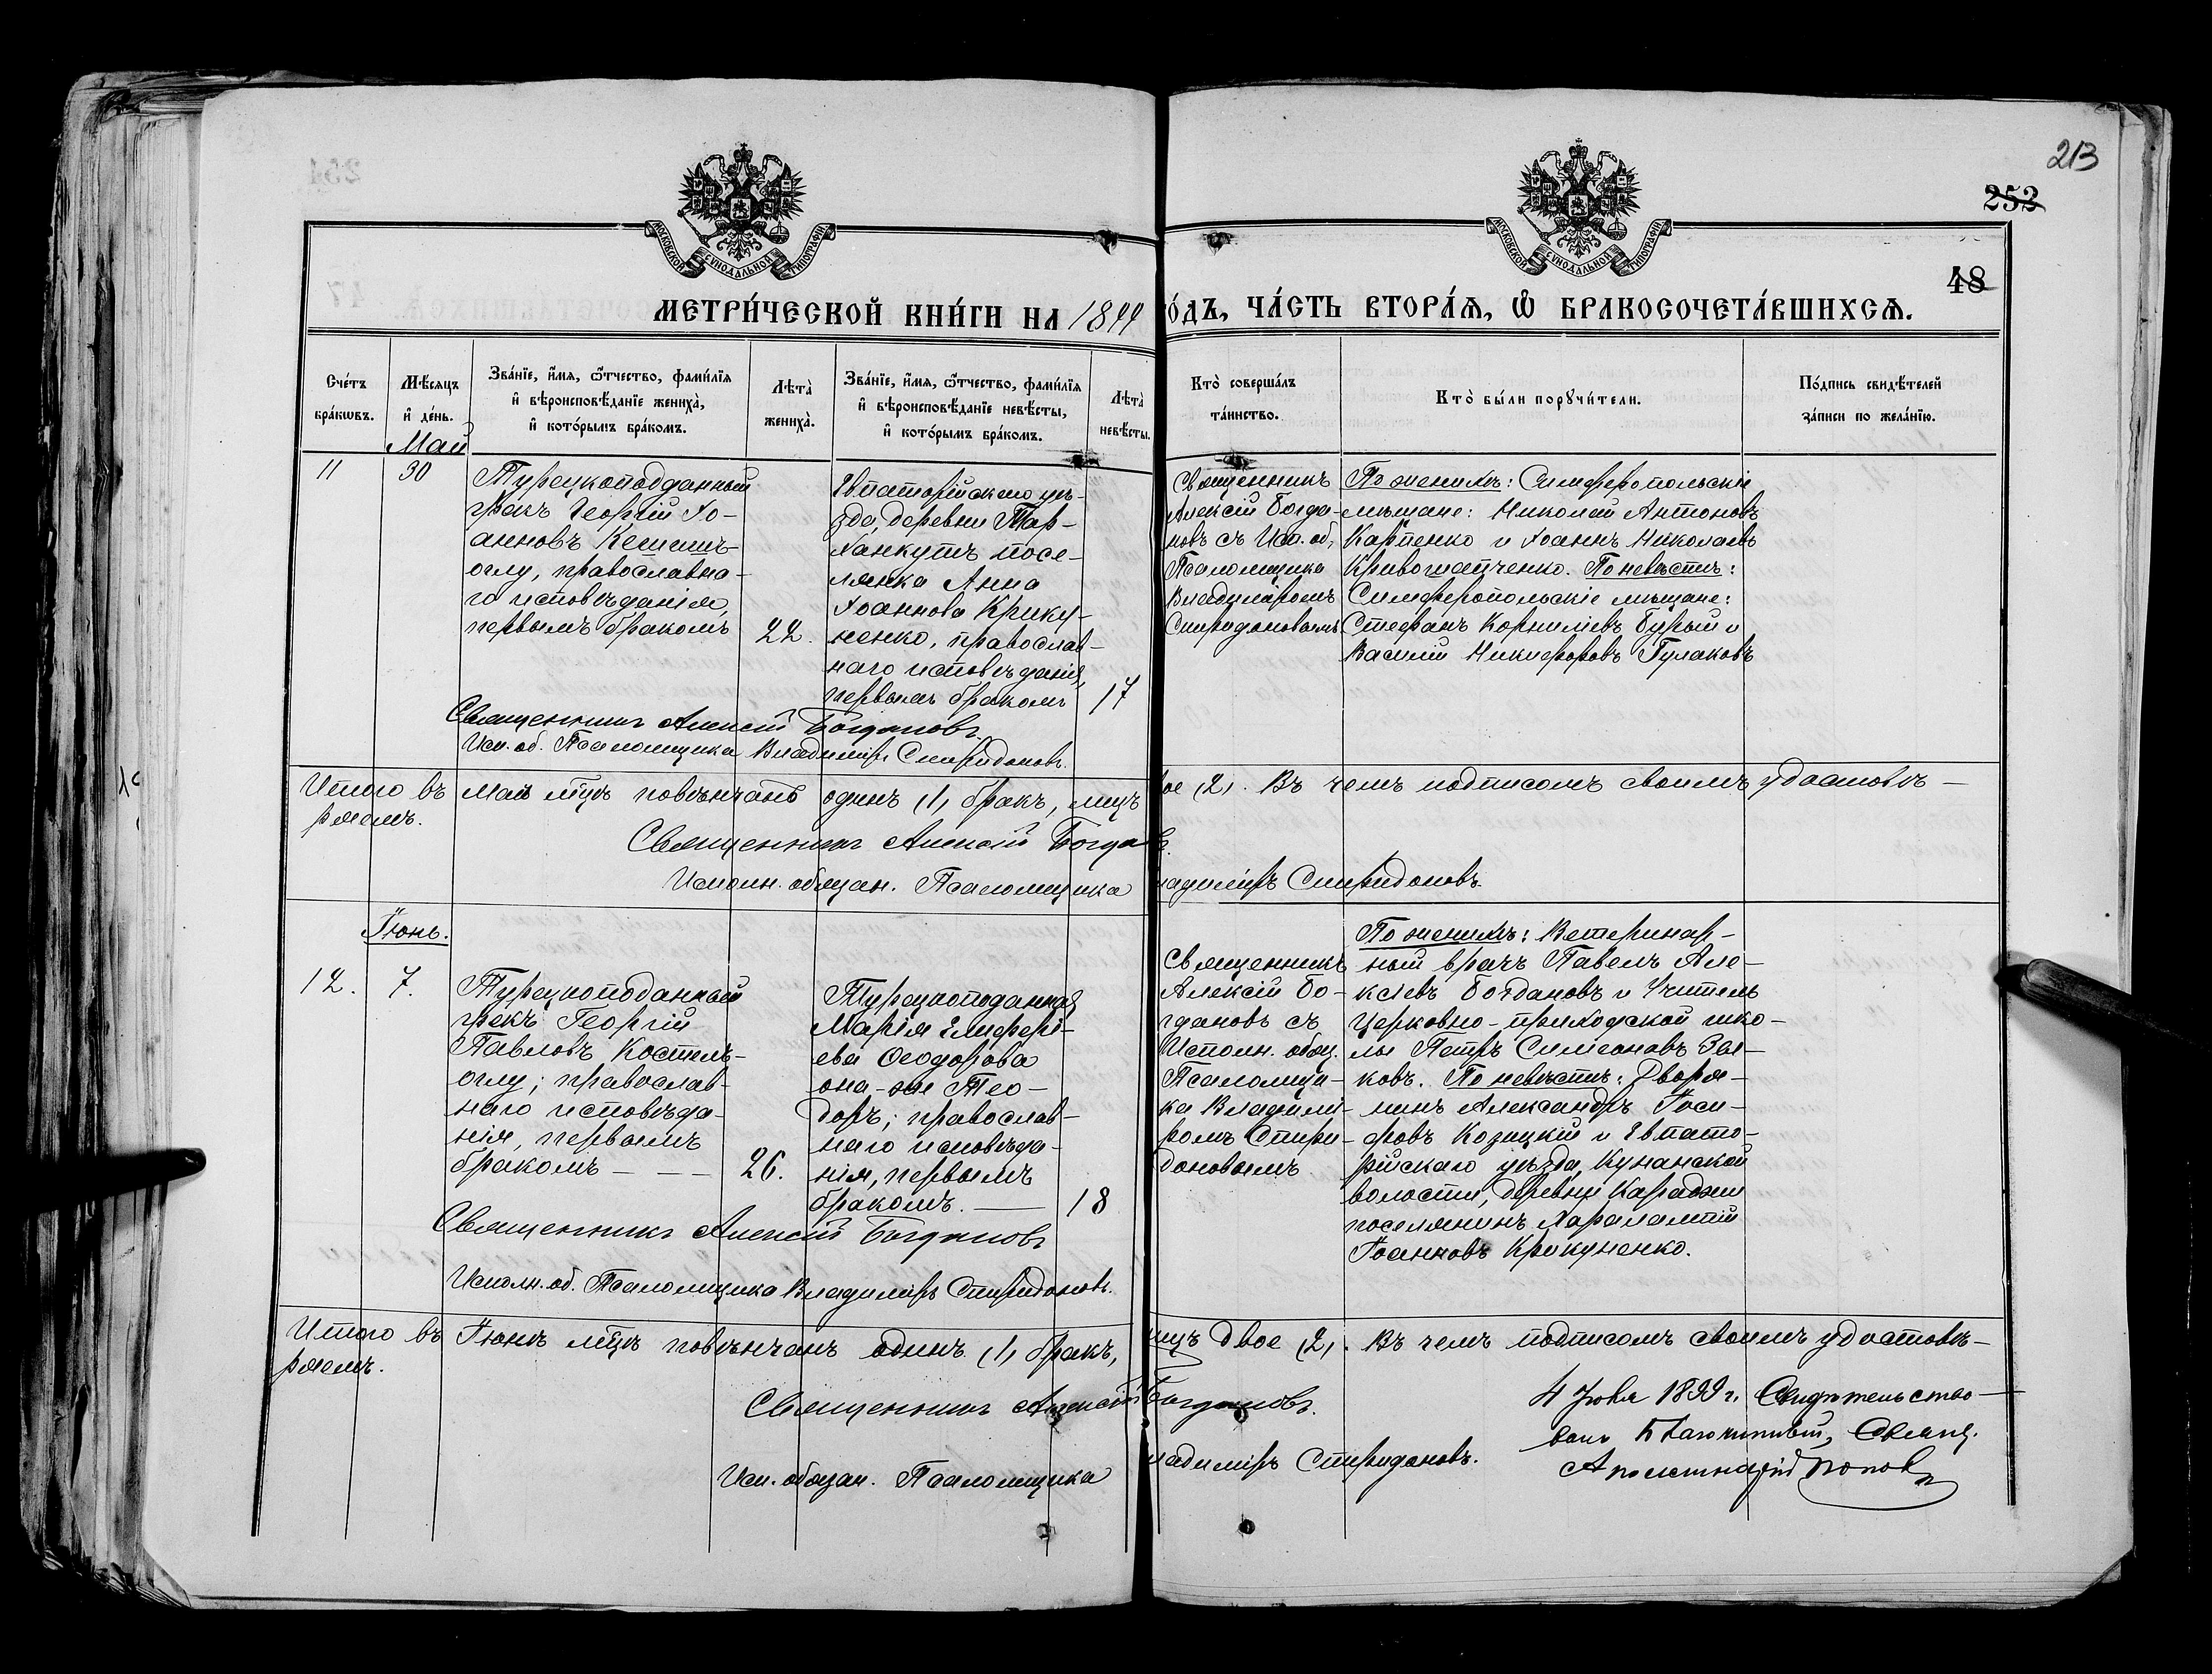 213
252
48
МОСКОВСКОЙ СѴНОДАЛЬНОЙ ТИПОГРАФІИ
МОСКОВСКОЙ СѴНОДАЛЬНОЙ ТИПОГРАФІИ
МЕТРИ́ЧЕСКОЙ КНИ́ГИ НА 1899
ГО́ДЪ, ЧА́СТЬ ВТОРА́Ѧ, Ѽ БРАКОСОЧЕТА́ВШИХСѦ.
Сче́тъ бра́кѡвъ.
Мѣ́сяцъ и҆ де́нь.
Зва́нїе, и҆́мѧ, ѻ҆́тчество, фами́лїѧ и҆ вѣроисповѣ́данїе жениха̀, и҆ кото́рымъ бра́комъ.
Лѣта̀ жениха̀.
Зва́нїе, и҆́мѧ, ѻ҆́тчество, фами́лїѧ и҆ вѣроисповѣ́данїе невѣ́сты, и҆ кото́рымъ бра́комъ.
Лѣта̀ невѣ́сты.
Кто̀ соверша́лъ та́инство.
Кто̀ бы́ли порꙋчи́тели.
По́дпись свидѣ́телей за́писи по жела́нїю.
Май
11
30
Турецкоподданный
грекъ Георгій Іо-
анновъ Кешишъ-
оглу, православна-
го исповѣданія,
первымъ бракомъ
22.
Евпаторійскаго уѣ-
зда, деревни Тар-
ханкутъ посе-
лянка Анна
Іоаннова Крику-
ненко, православ-
наго исповѣданія,
первымъ бракомъ
17
Священникъ
Алексій Богда-
новъ съ Исп. об.
Псаломщика
Владиміромъ
Спиридоновымъ
По женихѣ: Симферопольскіе
мѣщане: Николай Антоновъ
Карпенко и Іоаннъ Николаевъ
Кривошапченко. По невѣстѣ:
Симферопольскіе мѣщане:
Стефанъ Корниліевъ Бурый и
Василій Никифоровъ Гулаковъ
Священникъ Алексій Богдановъ.
Исп. об. Псаломщика Владиміръ Спиридоновъ.
Итого въ Маѣ мцѣ повѣнчанъ одинъ (1) бракъ, лицъ
двое (2). Въ чемъ подписомъ своимъ удостовѣ-
ряемъ.
Священникъ Алексій Богдановъ.
Исполн. обязан. Псаломщика Владиміръ Спиридоновъ.
Іюнь.
12.
7.
Турецкоподанный
грекъ Георгій
Павловъ Костель-
оглу; православ-
наго исповѣда-
нія, первымъ
бракомъ
26.
Турецкоподанная
Марія Елефері-
ева Ѳеодорова
она-же Тео-
доръ; православ-
наго исповѣда-
нія, первымъ
бракомъ.
18
Священникъ
Алексій Бо-
гдановъ съ
Исполн. обяз.
Псаломщи-
ка Владимі-
ромъ Спири-
доновымъ
По женихѣ: Ветеринар-
ный врачъ Павелъ Але-
ксіевъ Богдановъ и Учитель
Церковно-приходской шко-
лы Петръ Симеоновъ Зая-
ковъ. По невѣстѣ: Дворя-
нинъ Александръ Іоси-
фовъ Козицкій и Евпато-
рійскаго уѣзда, Кунанской
волости, деревни Караджи
поселянинъ Харалампій
Іоанновъ Крикуненко.
Священникъ Алексій Богдановъ
Исполн. об. Псаломщика Владиміръ Спиридоновъ.
Итого въ Іюнѣ мцѣ повѣнчанъ одинъ (1) бракъ,
лицъ двое (2). Въ чемъ подписомъ своимъ удостовѣ-
ряемъ.
Священникъ Алексій Богдановъ.
Исп. обязан. Псаломщика Владиміръ Спиридоновъ.
4 Іюля 1899 г. Свидѣтельство-
валъ Благочинный, Священ.
Аполлинарій Поповъ